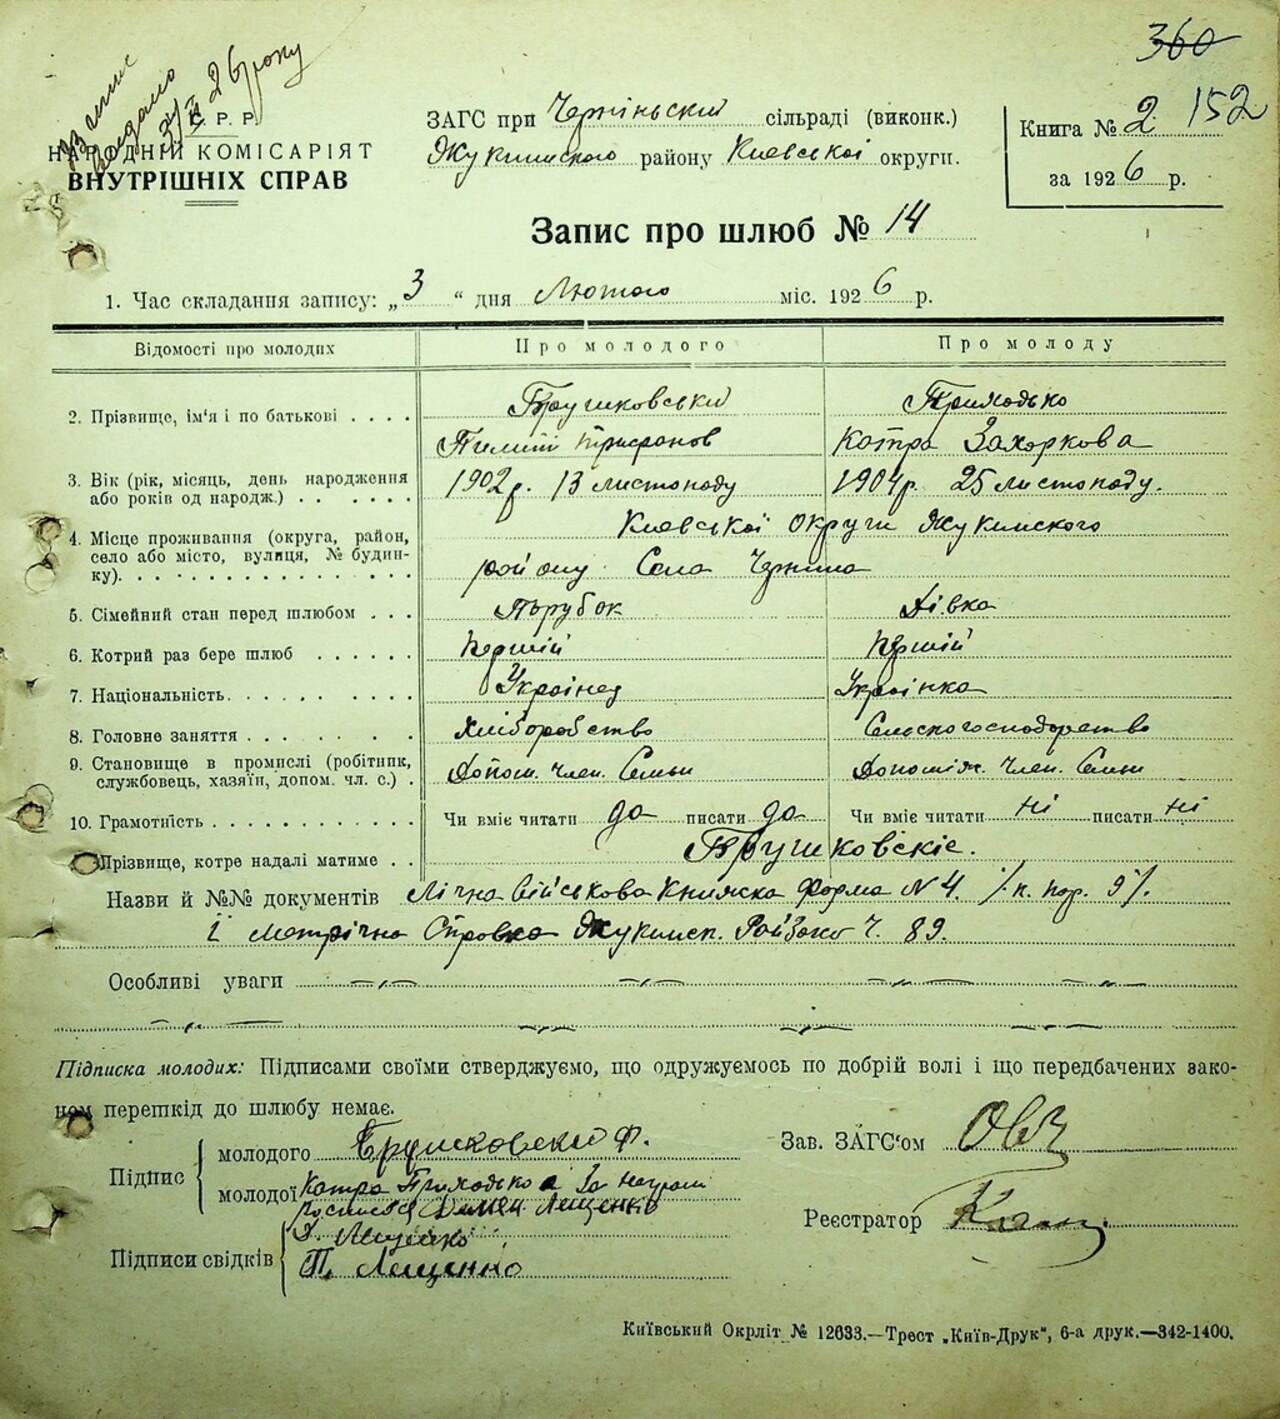 360
152
Виписе
видано
26 року
У. С. Р. Р.
НАРОДНІЙ КОМІСАРІЯТ
ВНУТРІШНІХ СПРАВ
ЗАГС при Черніньский сільраді (виконк.)
Жукинского району Киевської округи.
Книга № 2
за 1926 р.
Запис про шлюб № 14
1. Час складання запису: „3“ дня Лютого міс. 1926 р.
Відомості про молодих
Про молодого
Про молоду
2. Прізвище, ім'я і по батькові . . . .
Приходько
Пилип Трифонов
Катра Захоркова
3. Вік (рік, місяць, день народження
або років од народж.) . . . . . .
1902 р. 13 листопаду
1904 р. 25 листопаду.
4. Місце проживання (округа, район,
село або місто, вулиця, № будин-
ку). . . . . . . . . . . . . .
Киевської округи Жукинского
району Села Чернина
5. Сімейний стан перед шлюбом . . .
Парубок
Дівка
6. Котрий раз бере шлюб . . . . . .
Першій
Першій
7. Національність. . . . . . . . . .
Українец
Українка
8. Головне заняття . . . . . . .
Хліборобство
Сельскогосподарство
9. Становище в промислі (робітник,
службовець, хазяїн, допом. чл. с.) .
Допом. член. Семьи
Допоміж. Член. Семьи
10. Грамотність . . . . . . . . . . . .
Чи вміє читати да писати да
Чи вміє читати ні писати ні
Прізвище, котре надалі матиме . .
Назви й №№ документів Лічна військова Книжка Форма N 4.
і Метрічна Справка Жукинск. Ч. 89.
Особливі уваги
Підписка молодих: Підписами своїми стверджуємо, що одружуємось по добрій волі і що передбачених зако-
ном перешкід до шлюбу немає.
Підпис
молодого
молодої Катра Приходько а за
Лещенко
Підписи свідків
Т. Лещенко
Зав. ЗАГС'ом
Реєстратор
Київський Окрліт № 12633.—Трест „Київ-Друк“, 6-а друк.—342-1400.